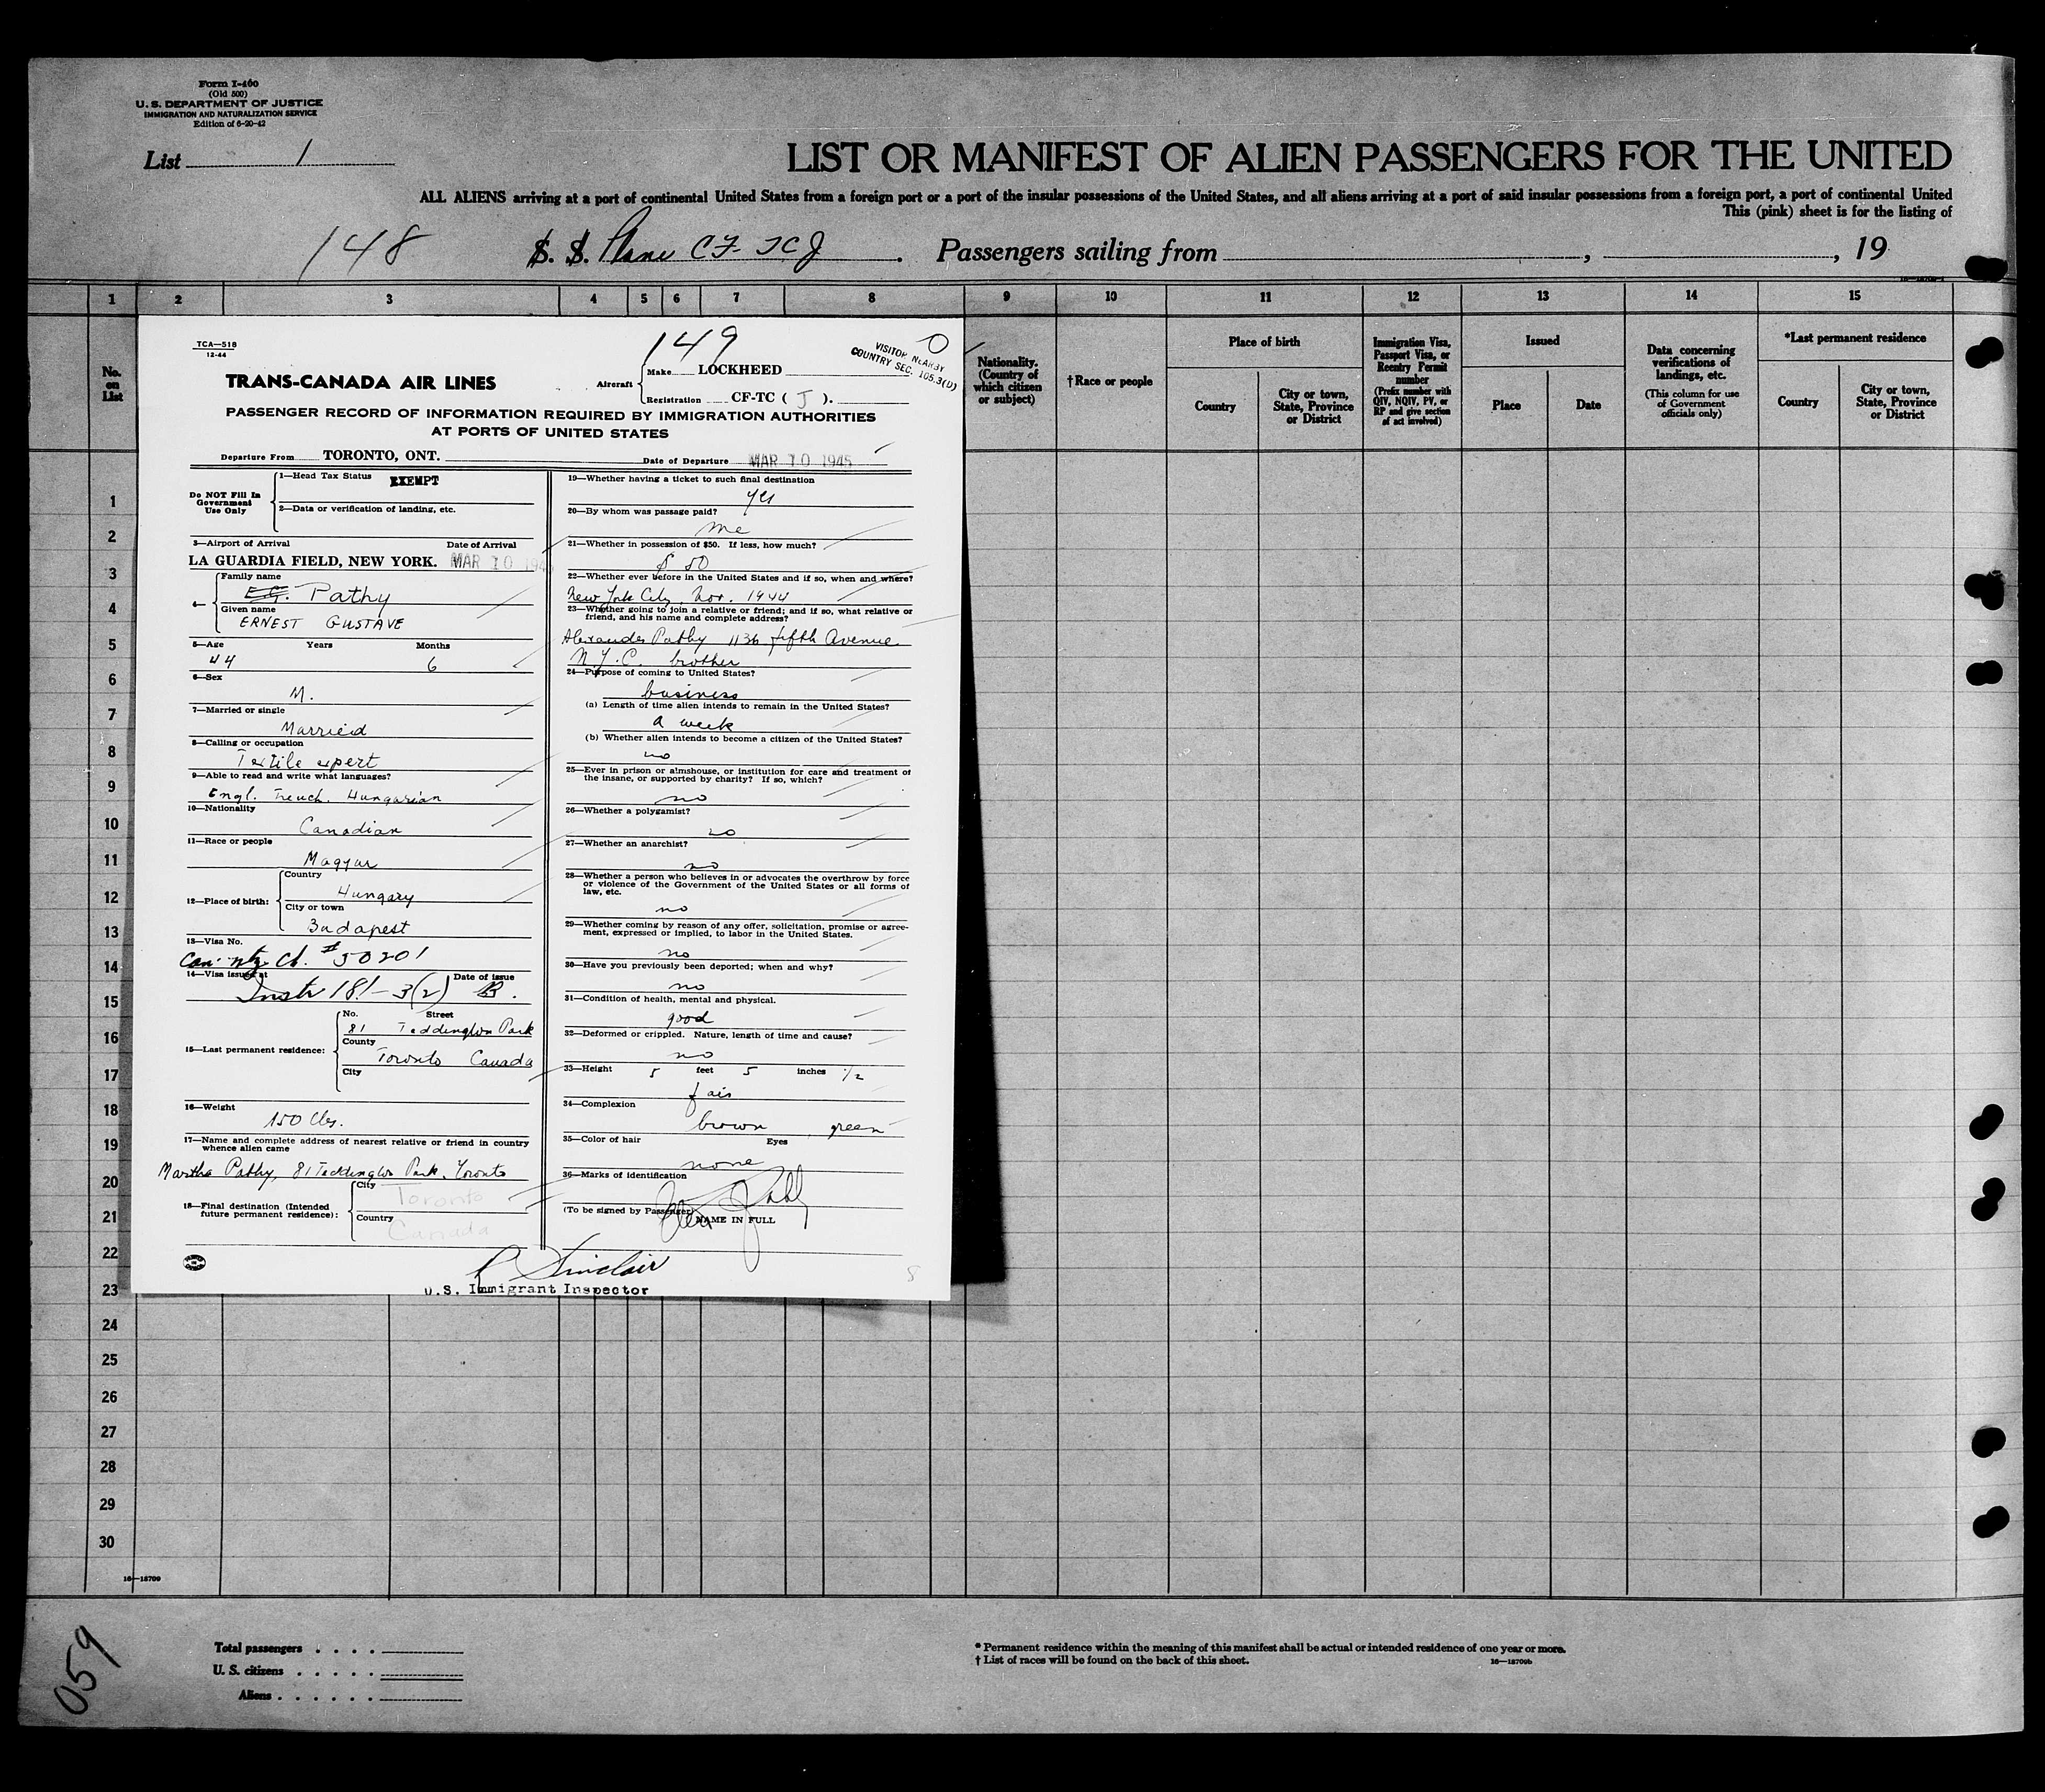 Form I-400
(Old 500)
U. S. DEPARTMENT OF JUSTICE
IMMIGRATION AND NATURALIZATION SERVICE
Edition of 6-20-42
List 1
LIST OR MANIFEST OF ALIEN PASSENGERS FOR THE UNITED
ALL ALIENS arriving at a port of continental United States from a foreign port or a port of the insular possessions of the United States, and all aliens arriving at a port of said insular possessions from a foreign port, a port of continental United
This (pink) sheet is for the listing of
148 S. S. Plane CF-TCJ. Passengers sailing from , , 19
1 2 3 4 5 6 7 8 9 10 11 12 13 14 15
No. on List
Nationality. (Country of which citizen or subject)
† Race or people
Place of birth
Country
City or town, State, Province or District
Immigration Visa, Passport Visa, or Reentry Permit number
(Prefix number with QIV, NQIV, PV, or RP and give section of act involved)
Issued
Place
Date
Data concerning verifications of landings, etc.
(This column for use of Government officials only)
*Last permanent residence
Country
City or town, State, Province or District
TCA—518
12-44
149 0
VISITOR NEARBY
COUNTRY SEC. 105.3(U)
TRANS-CANADA AIR LINES
Aircraft
Make LOCKHEED
Registration CF-TC ( J ).
PASSENGER RECORD OF INFORMATION REQUIRED BY IMMIGRATION AUTHORITIES
AT PORTS OF UNITED STATES
Departure From TORONTO, ONT. Date of Departure MAR 10 1945
Do NOT Fill In
Government
Use Only
1—Head Tax Status EXEMPT
2—Data or verification of landing, etc.
3—Airport of Arrival Date of Arrival
LA GUARDIA FIELD, NEW YORK. MAR 10 194
4—
Family name
E.G. Pathy
Given name
ERNEST GUSTAVE
5—Age Years Months
44 6
6—Sex
M.
7—Married or single
Married
8—Calling or occupation
Textile expert
9—Able to read and write what languages?
Engl. French. Hungarian
10—Nationality
Canadian
11—Race or people
Magyar
12—Place of birth:
Country
Hungary
City or town
Budapest
13—Visa No.
Can. Ct. #50201
14—Visa issued at Date of issue
Instr 181-3(2) B.
15—Last permanent residence:
No. Street
81 Teddington Park
County
Toronto Canada
City
16—Weight
150 lbs.
17—Name and complete address of nearest relative or friend in country
whence alien came
Martha Pathy, 81 Teddington Park, Toronto
18—Final destination (Intended
future permanent residence):
City
Toronto
Country
Canada
19—Whether having a ticket to such final destination
yes
20—By whom was passage paid?
me
21—Whether in possession of $50. If less, how much?
$ 50
22—Whether ever before in the United States and if so, when and where?
New York City, Nov. 1944
23—Whether going to join a relative or friend; and if so, what relative or
friend, and his name and complete address?
Alexander Pathy 1136 fifth Avenue
N.Y.C. brother
24—Purpose of coming to United States?
business
(a) Length of time alien intends to remain in the United States?
a week
(b) Whether alien intends to become a citizen of the United States?
no
25—Ever in prison or almshouse, or institution for care and treatment of
the insane, or supported by charity? If so, which?
no
26—Whether a polygamist?
no
27—Whether an anarchist?
no
28—Whether a person who believes in or advocates the overthrow by force
or violence of the Government of the United States or all forms of
law, etc.
no
29—Whether coming by reason of any offer, solicitation, promise or agree-
ment, expressed or implied, to labor in the United States.
no
30—Have you previously been deported; when and why?
no
31—Condition of health, mental and physical.
good
32—Deformed or crippled. Nature, length of time and cause?
no
33—Height 5 feet 5 inches 1/2
fair
34—Complexion
brown green
35—Color of hair Eyes
none
36—Marks of identification
(To be signed by Passenger)
NAME IN FULL
Sinclair
U.S. Immigrant Inspector
1
2
3
4
5
6
7
8
9
10
11
12
13
14
15
16
17
18
19
20
21
22
23
24
25
26
27
28
29
30
16—18709
Total passengers . . . .
U. S. citizens . . . . .
Aliens . . . . . .
* Permanent residence within the meaning of this manifest shall be actual or intended residence of one year or more.
† List of races will be found on the back of this sheet.
16—18709b
059